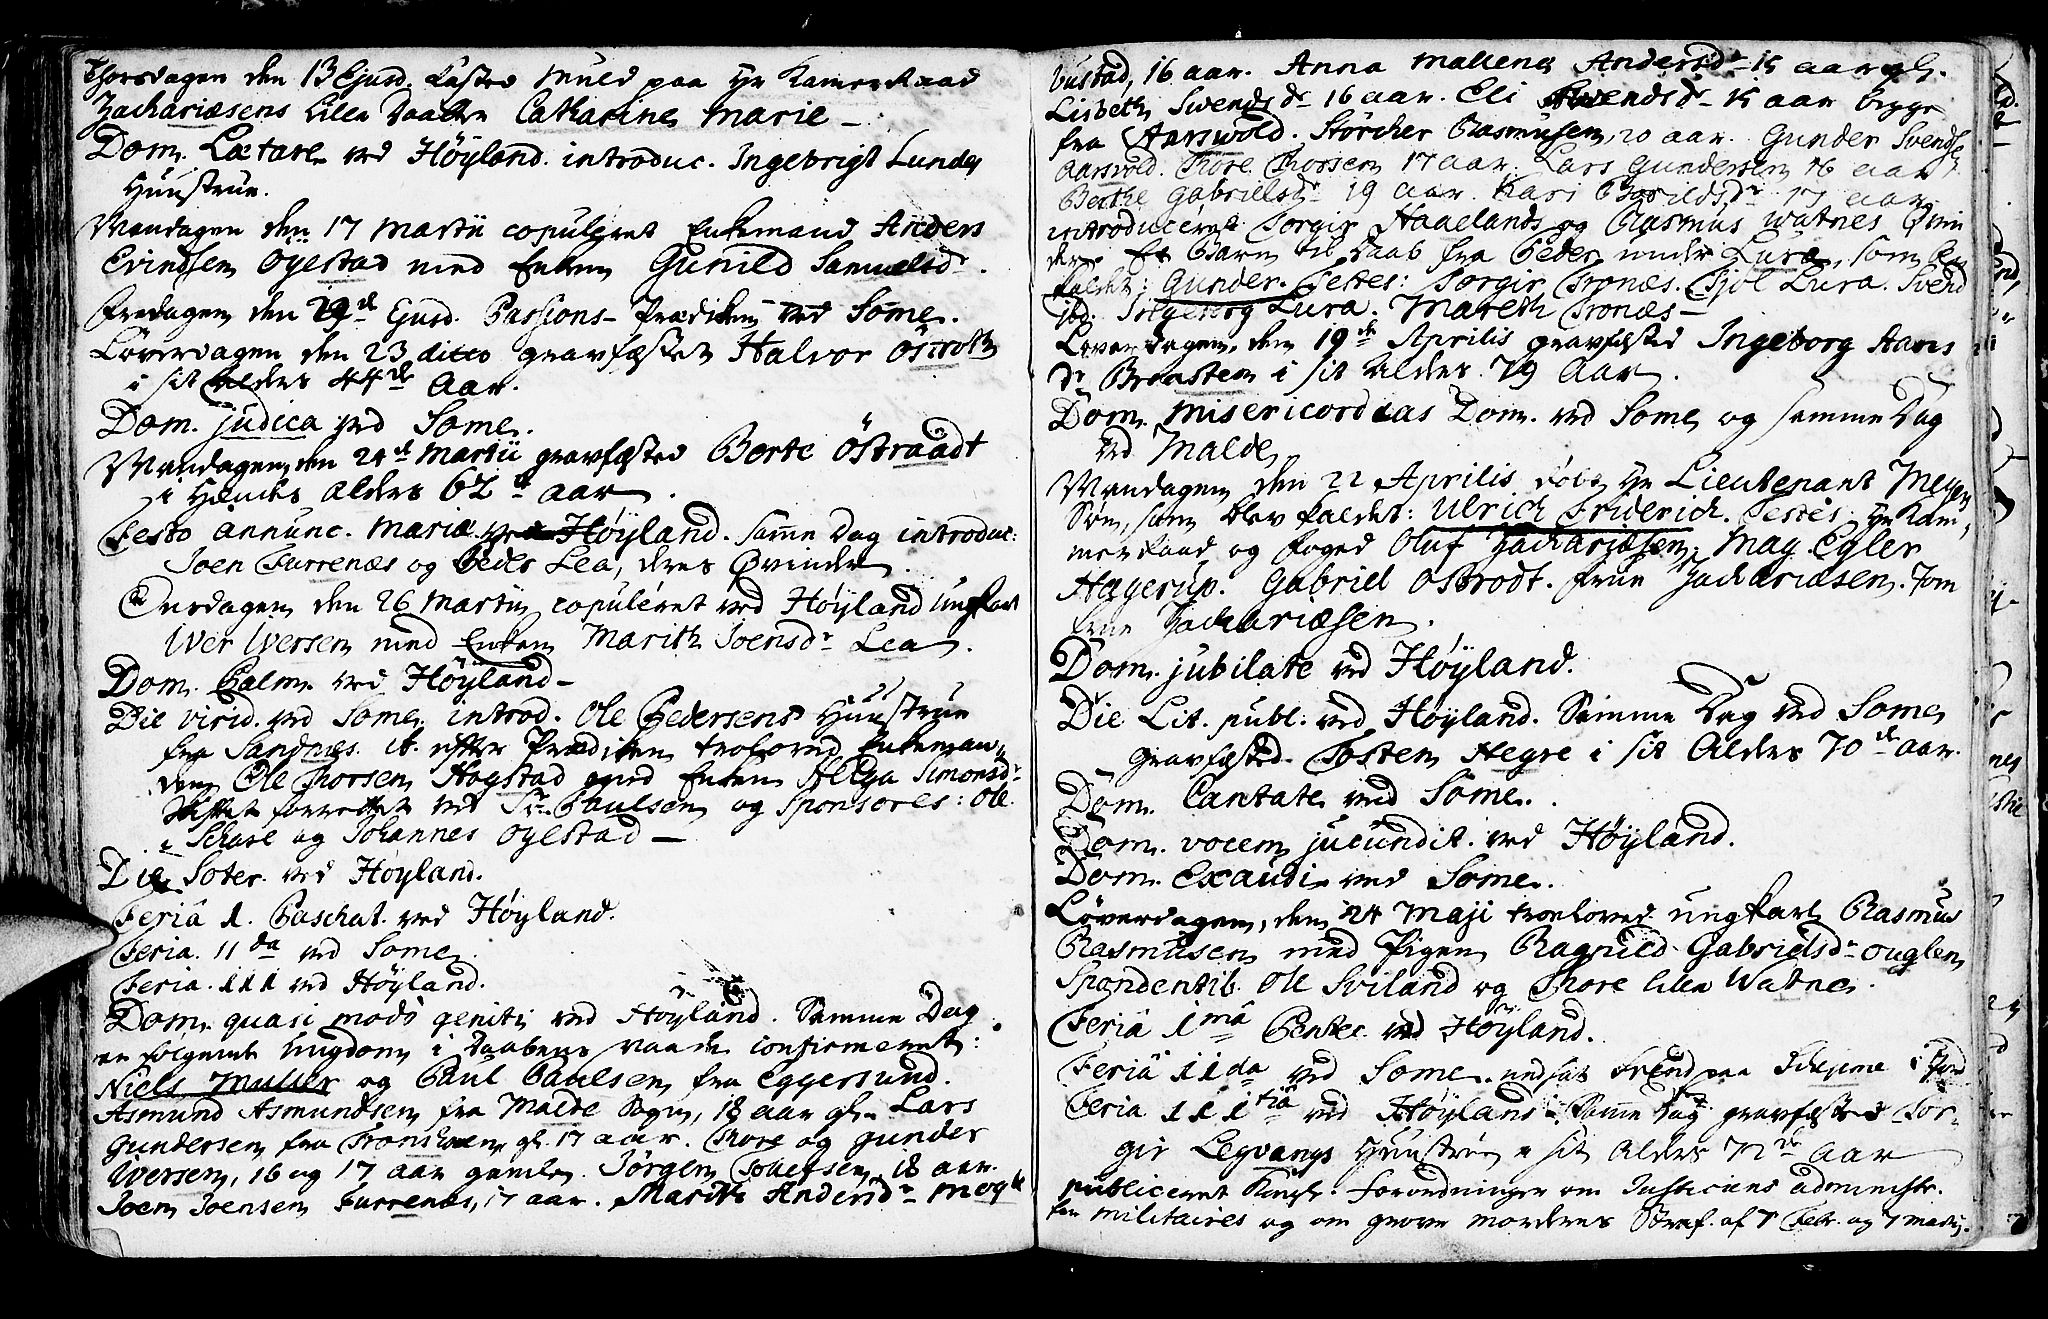 Thorsdagen den 13 Ejusd. kasted Muld paa Hr Kamerraad
Zachariæsens lille Daatter Catharine Marie –
Dom. Lætare ved Höyland. introduc. Ingebrigt Lundes
Huustrue.
Mandagen den 17 Martii copuleret Enkemand Anders
Evindsen Oÿestad med Enken Gunild Samuelsdr.
Fredagen den Ejusd. Passions-Prædiken ved Some.
Löverdagen den 23 ditto gravfæstet Halvor
i sit Alders 44de Aar.
Dom. judica ved Some.
Mandagen den 24de Martii gravfæsted Berte Östraadt
i Hendes Alders 62de aar.
Festo annunc. Mariæ ved Höyland. samme Dag introduc:
Joen Furrenæs og Peder Lea, deres Qvinder.
Onsdagen den 26 Martii copuleret ved Höyland ungkarl
Iver Iversen med Enken Marith Joensdr Lea.
Dom. Palm. ved Höyland –
Die virid. ved Some. introd. Ole Pedersens Huustrue
fra Sandnes. it. efter Prædiken troloved Enkeman=
den Ole Thorsen Hogstad med Enken Helga Simonsdr
Skiftet forrettet ved Sr. Paulsen og Sponsores: Ole
Schare og Johannes Oyestad –
Die Soter. ved Höyland.
Feriâ 1. Paschat. ved Höyland.
Feria. 11da ved Some.
Feria. 111 ved Höyland.
Dom. quasi modò geniti ved Höyland. Samme Dag
er fölgende Ungdom i Daabens naade confirmeret:
Niels Muller og Paul Paulsen fra Eggersund.
Asmund Asmundsen fra Malde Sogn, 18 aar gl. Lars
Gundersen fra gl. 17 aar. Thore og Gunder
Iversen, 16 og 17 aar gamle. Jörgen 18 aar.
Joen Joensen Furrenæs, 17 aar. Marith Andersdr
16 aar. Anna Mallena Andersdr 15 aar gl.
Lisbeth Swendsdr 16 aar. Eli Swendsdr 15 aar begge
fra Aarswold. Störcher Rasmusen, 20 aar. Gunder Svends
Aarsvold. Tore Thorsen 17 aar. Lars Gundersen 16 aar
Berthe Gabrielsdr 19 aar. Kari 17 aar
introduceret Torgir Haaelands og Rasmus Watnes Qvin
der. Et Barn til Daab fra Peder under Lura, som blev
kaldet: Gunder. Testes: Torgir Tronæs. Lura. Svend
ibd. Ingeborg Lura. Mareth Tronæs –
Löverdagen, den 19de Aprilis gravfæsted Ingeborg Hans
dr i sit Alders 79 Aar.
Dom. Misericordias Dom. ved Some og samme Dag
ved Malde
Mandagen den 22 Aprilis döbt Hr Lieutenant Meyers
Sön, som blev kaldet: Ulrich Friderich. Testes: Hr Kam=
merraad og Foged Oluf Zachariæsen. Mag. Egler
Hagerup. Gabriel Ostrodt. Frue Zachariæsen. Jom
frue Zachariæsen.
Dom. jubilate ved Höyland.
Die Lit. publ. ved Höyland. Samme Dag ved Some
gravfæsted Tosten Hegre i sit Alders 70de aar.
Dom. Cantate ved Some.
Dom. vocem jucundit. ved Höyland.
Dom. Exaudi ved Some.
Löverdagen, den 24 Maji troloved ungkarl Rasmus
Rasmusen med Pigen Ragnild Gabrielsdr ouglen
Spondentib. Ole Sviland og Thore lille Watne.
Feriâ 1mâ Pentec. ved Höyland.
Feriâ 11da ved Some. paa
Feria 111tiâ ved Höyland. Samme Dag gravfæsted Tor=
gir Legvangs Huustrue i sit Alders 72de Aar
publiceret Kongl. Forordninger om Justiciens administr.
for militaires og om grove morderes Straf. af 7 Febr. og 7 Martii.